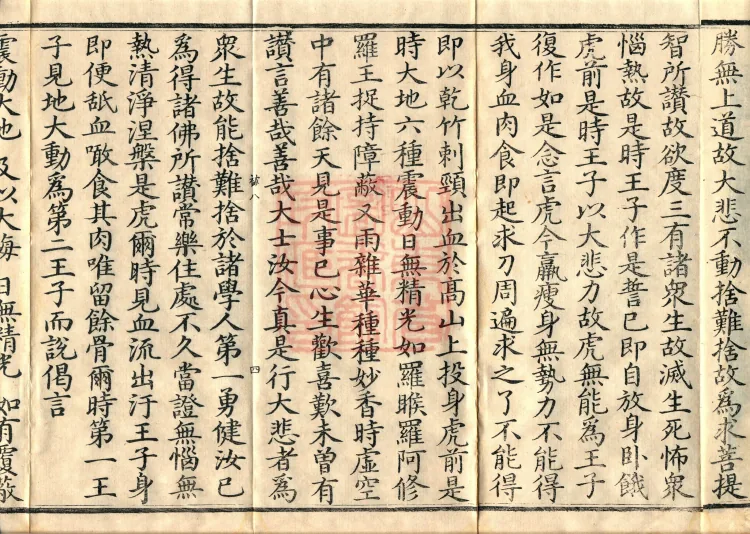 勝無上道故大悲不動捨難捨故爲求菩提
智所讃故欲度三有諸衆生故滅生死怖衆
惱熱故是時王子作是誓已即自放身卧餓
虎前是時王子以大悲力故虎無能爲王子
復作如是念言虎今羸瘦身無勢力不能得
我身血肉食即起求刀周遍求之了不能得
即以乾竹刺頸出血於髙山上投身虎前是
時大地六種震動日無精光如羅睺羅阿修
羅王捉持障蔽又雨雜華種種妙香時虛空
中有諸餘天見是事已心生歡喜歎未曽有
讃言善哉善哉大士汝今真是行大悲者爲
八 四
衆生故能捨難捨於諸學人第一勇健汝已
為得諸佛所讃常樂住處不久當證無惱無
熱清淨涅槃是虎爾時見血流出汙王子身
即便舐血噉食其肉唯留餘骨爾時第一王
子見地大動爲第二王子而說偈言
震動大地 及以大海 日無精光 如有覆蔽